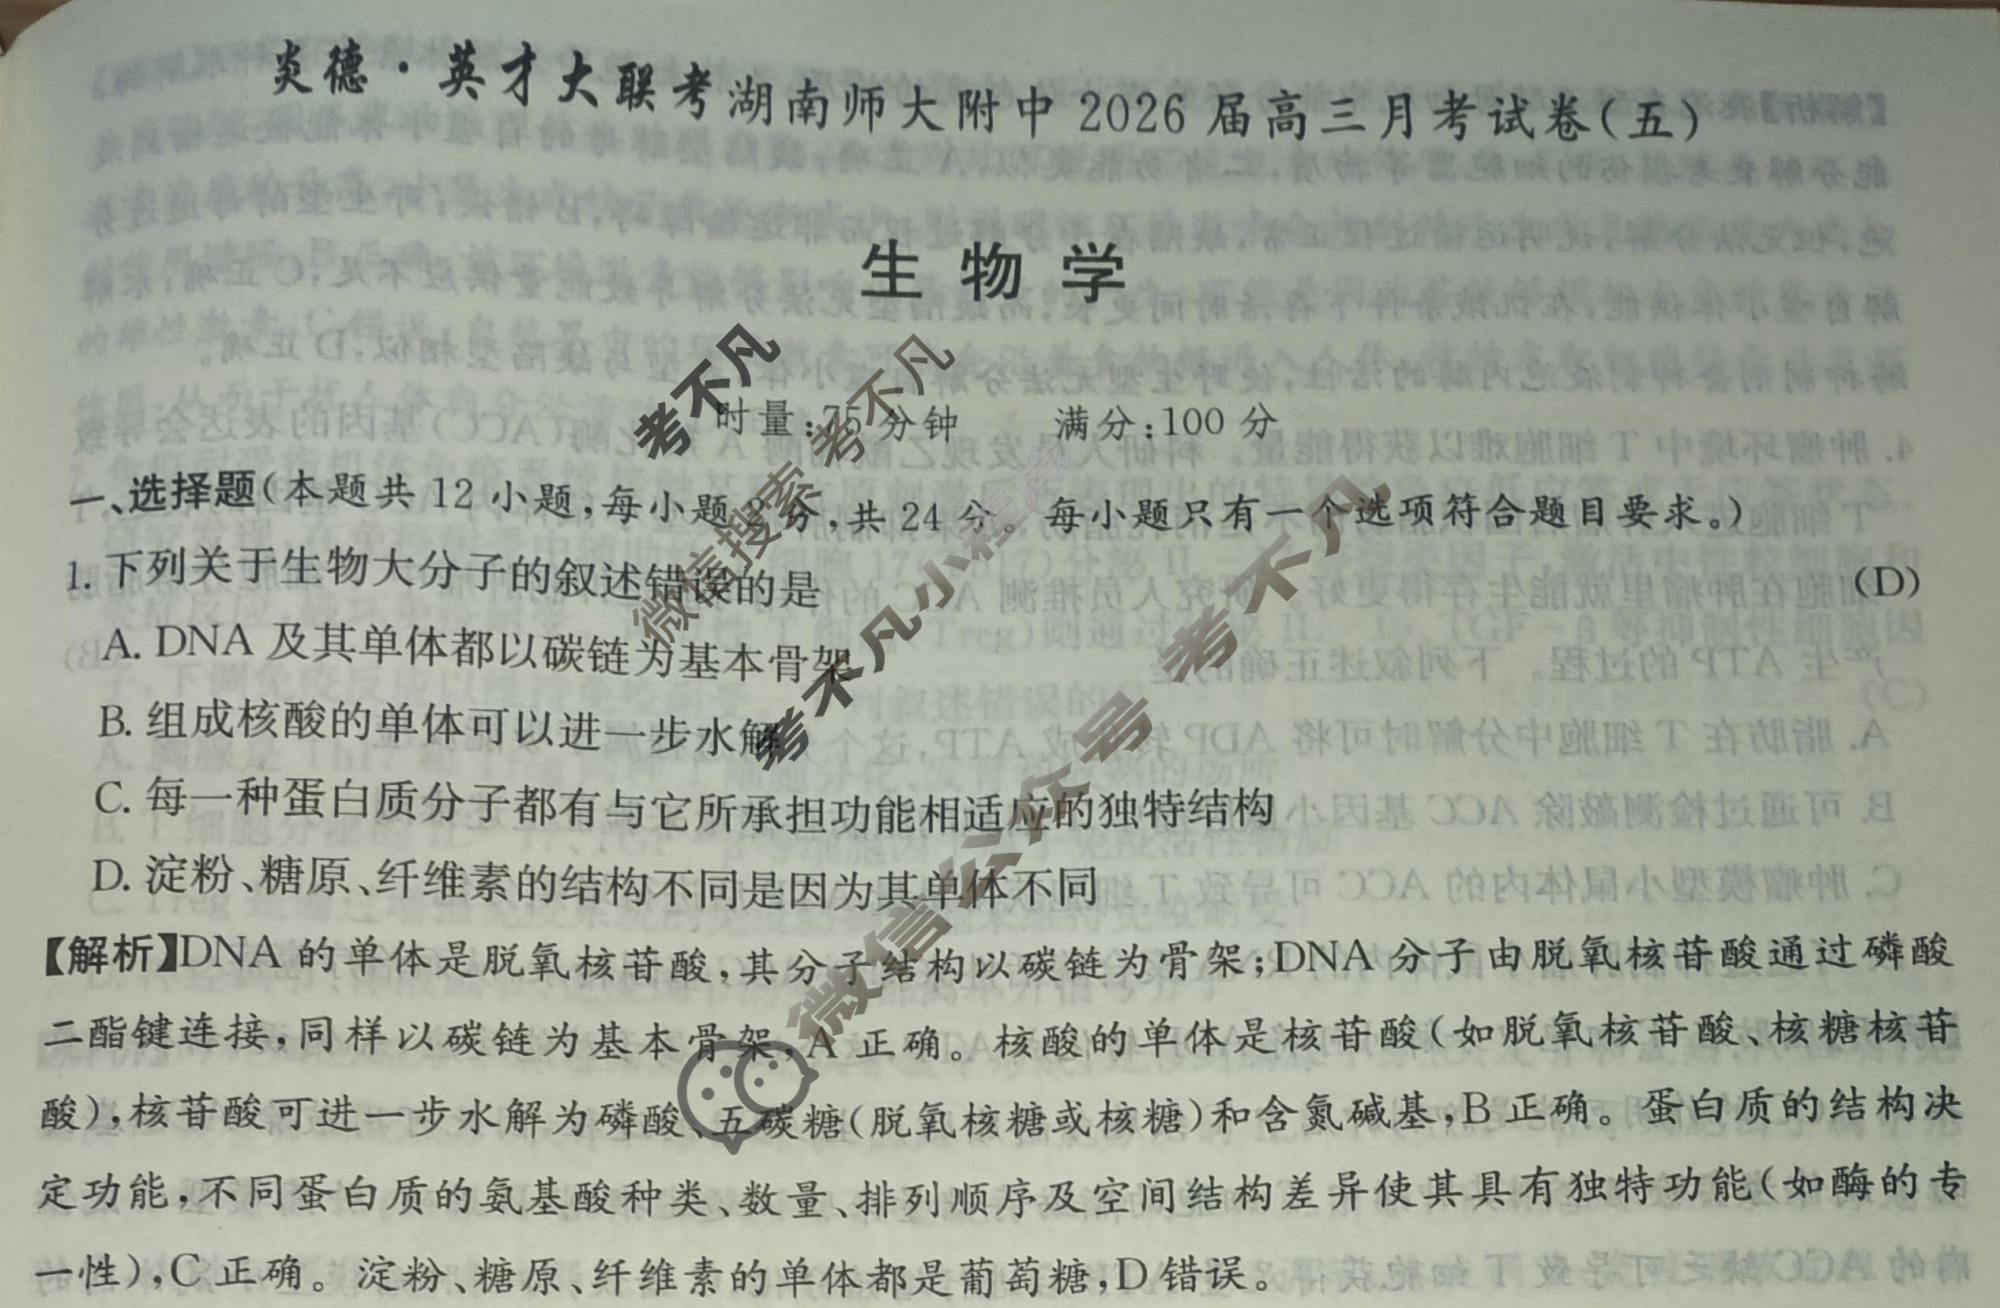 炎德·英才大联考湖南师大附中2026届高三月考试卷(五)
生物学
时量:75分钟 满分:100分
一、选择题(本题共12小题,每小题2分,共24分。每小题只有一个选项符合题目要求。)
1. 下列关于生物大分子的叙述错误的是 (D)
A. DNA及其单体都以碳链为基本骨架
B. 组成核酸的单体可以进一步水解
C. 每一种蛋白质分子都有与它所承担功能相适应的独特结构
D. 淀粉、糖原、纤维素的结构不同是因为其单体不同
【解析】DNA的单体是脱氧核苷酸,其分子结构以碳链为骨架;DNA分子由脱氧核苷酸通过磷酸
二酯键连接,同样以碳链为基本骨架,A正确。核酸的单体是核苷酸(如脱氧核苷酸、核糖核苷
酸),核苷酸可进一步水解为磷酸、五碳糖(脱氧核糖或核糖)和含氮碱基,B正确。蛋白质的结构决
定功能,不同蛋白质的氨基酸种类、数量、排列顺序及空间结构差异使其具有独特功能(如酶的专
一性),C正确。淀粉、糖原、纤维素的单体都是葡萄糖,D错误。
考不凡
微信搜索 考不凡
考不凡小程序
微信公众号 考不凡